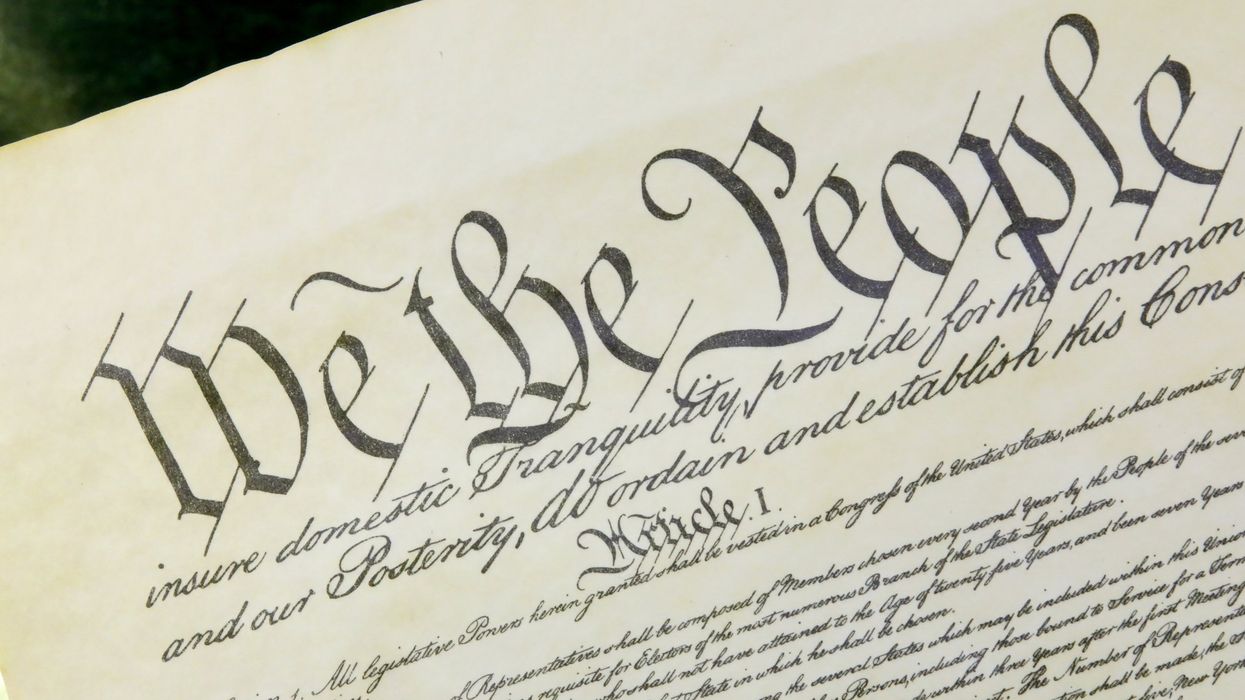 We the People
insure domestic Tranquility, provide for the common
and our Posterity, do ordain and establish this Cons
Article. I.
All legislative Powers herein granted shall be vested in a Congress of the United States, which shall consist of
Representatives shall be composed of Members chosen every second Year by the People of the seve
requisite for Electors of the most numerous Branch of the State Legislature.
who shall not have attained to the Age of twenty five Years, and been seven Years
State in which he shall be chosen.
the several States which may be included within this Union
Persons, including those bound to Service for a Term
within three Years after the first Meeting
The Number of Represent
shall be made, the
New York